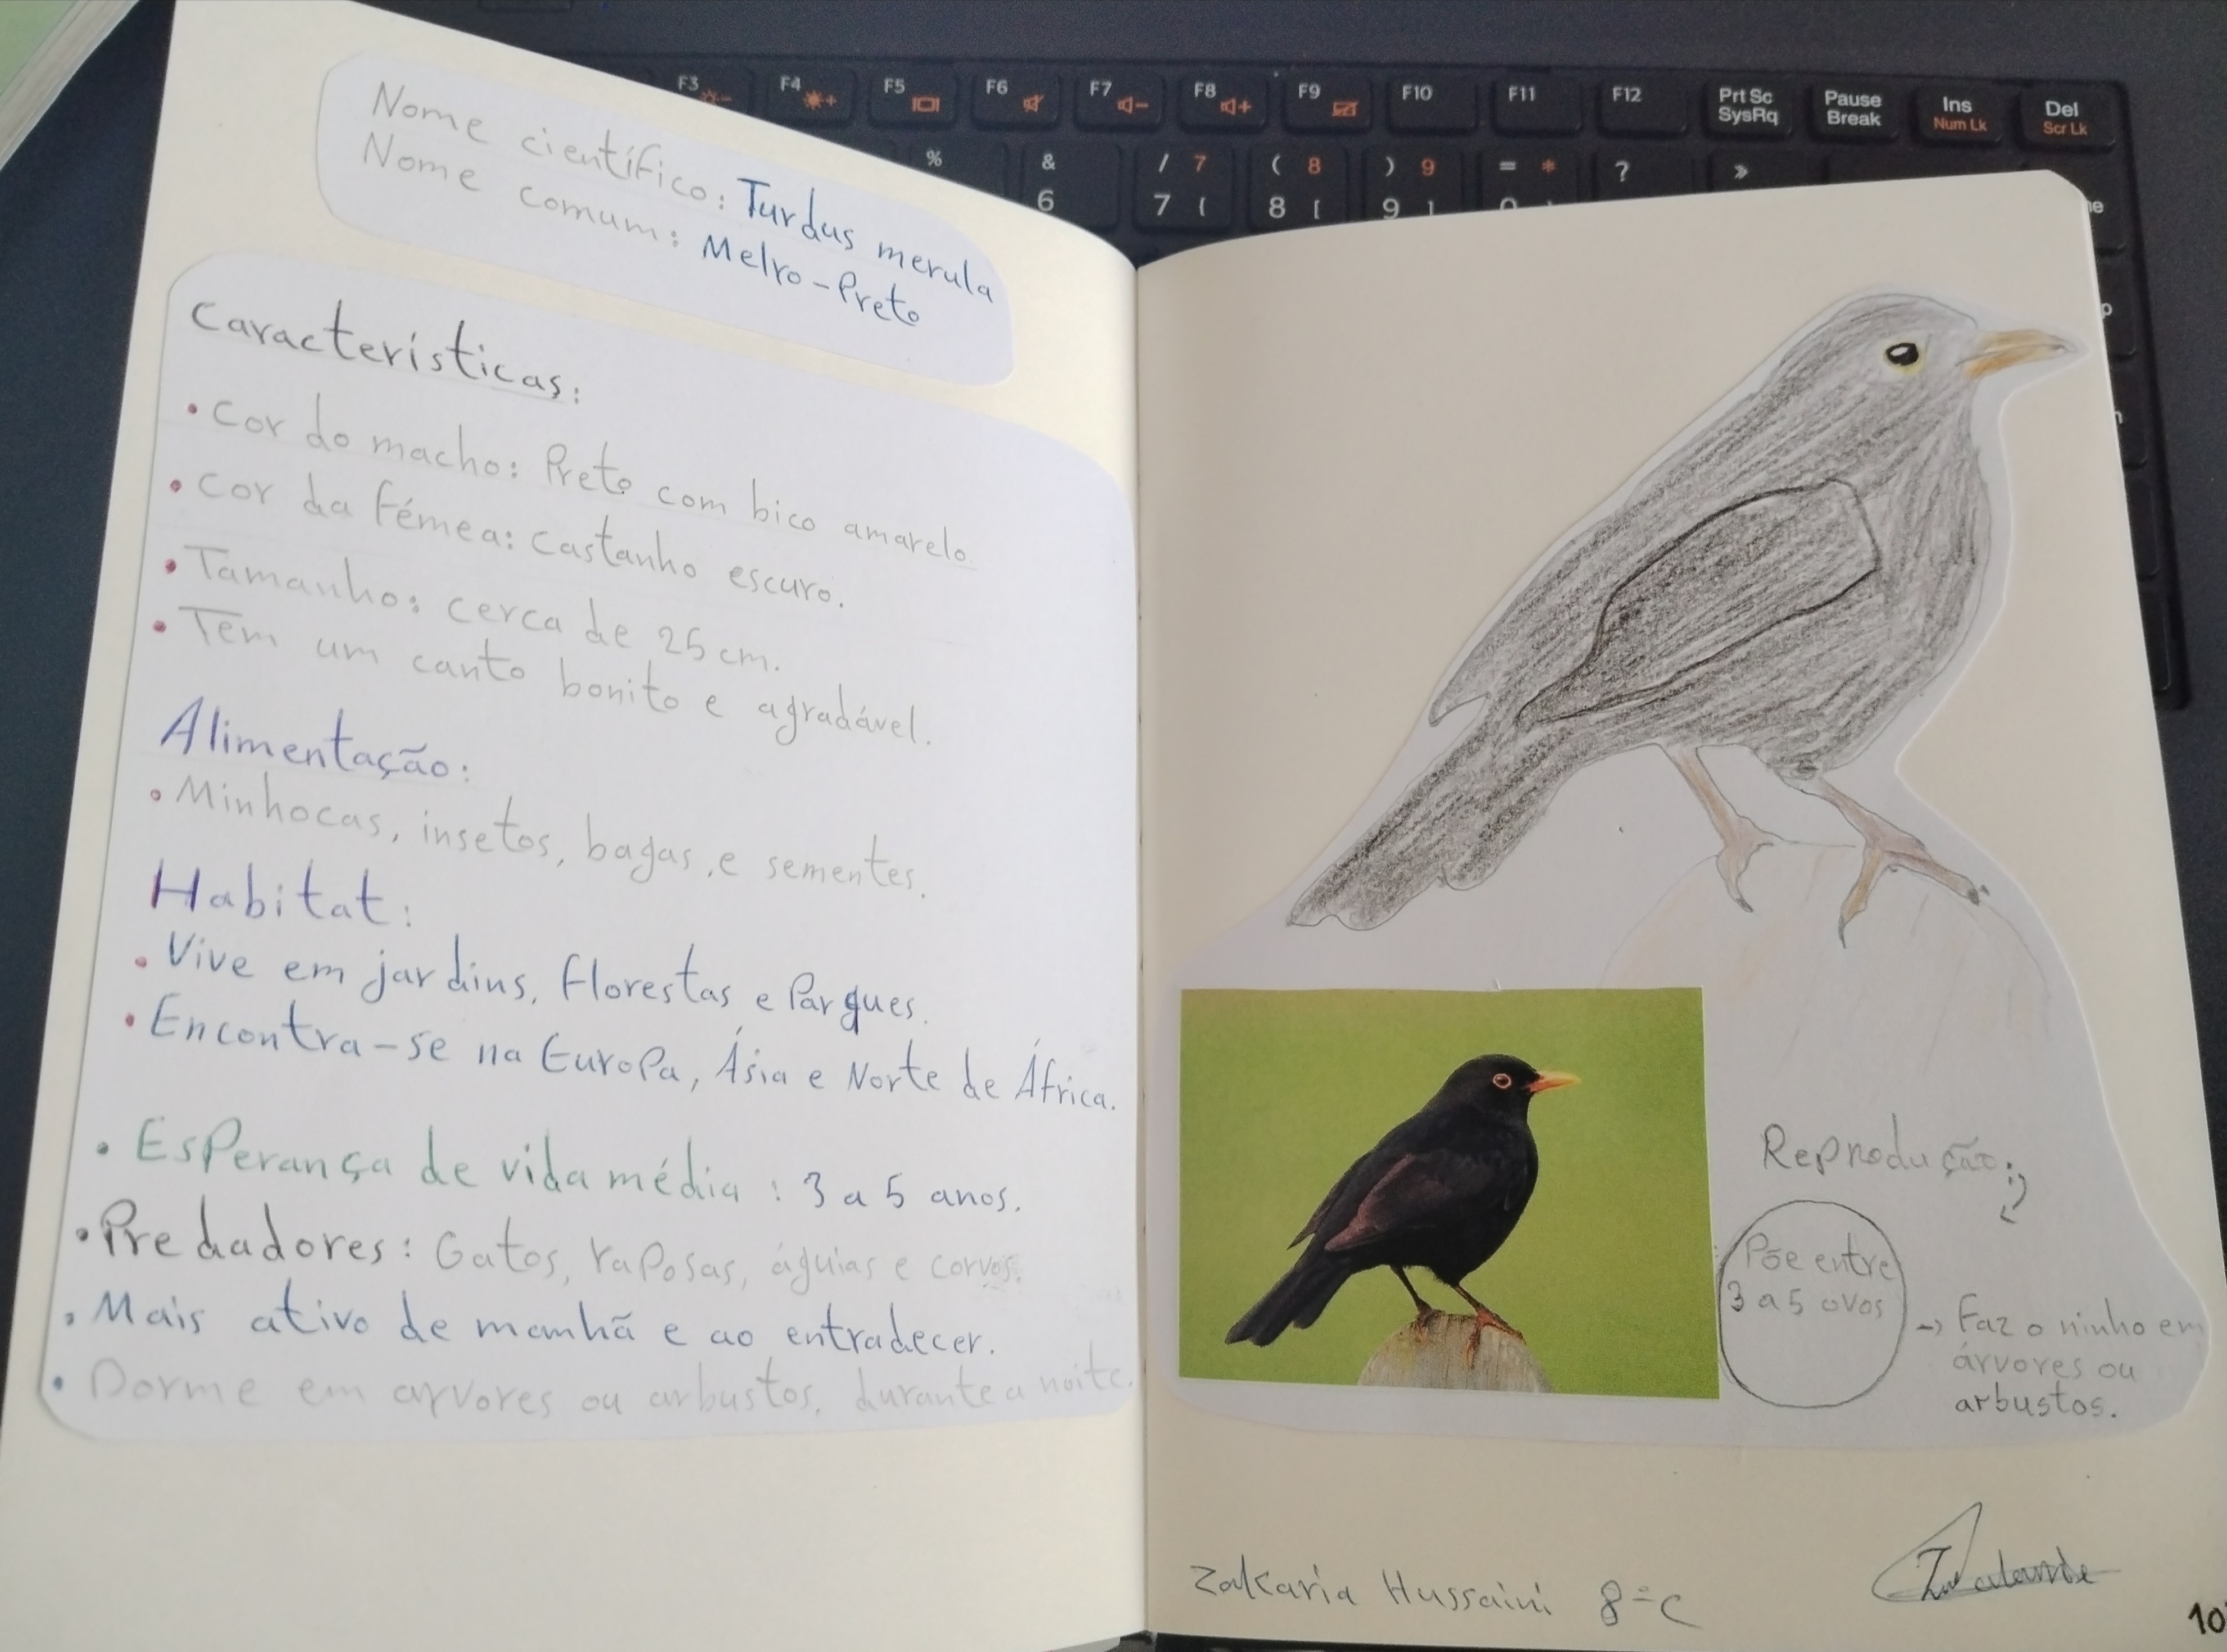 Nome científico: Turdus merula
Nome comum: Melro-Preto
Características:
• Cor do macho: Preto com bico amarelo.
• Cor da Fémea: Castanho escuro.
• Tamanho: cerca de 25 cm.
• Tem um canto bonito e agradável.
Alimentação:
• Minhocas, insetos, bagas, e sementes.
Habitat:
• Vive em jardins, Florestas e Parques.
• Encontra-se na Europa, Ásia e Norte de África.
• Esperança de vida média: 3 a 5 anos.
• Predadores: Gatos, raposas, águias e corvos.
• Mais ativo de manhã e ao entradecer.
• Dorme em arvores ou arbustos, durante a noite.
Reprodução:
Põe entre
3 a 5 ovos
→ Faz o ninho em
árvores ou
arbustos.
Zakaria Hussaini 8ºC
10
F3
F4
F5
F6
F7
F8
F9
F10
F11
F12
Prt Sc
SysRq
Pause
Break
Ins
Num Lk
Del
Scr Lk
%
&
6
/ 7
7 {
( 8
8 [
) 9
9 ]
= *
?
»